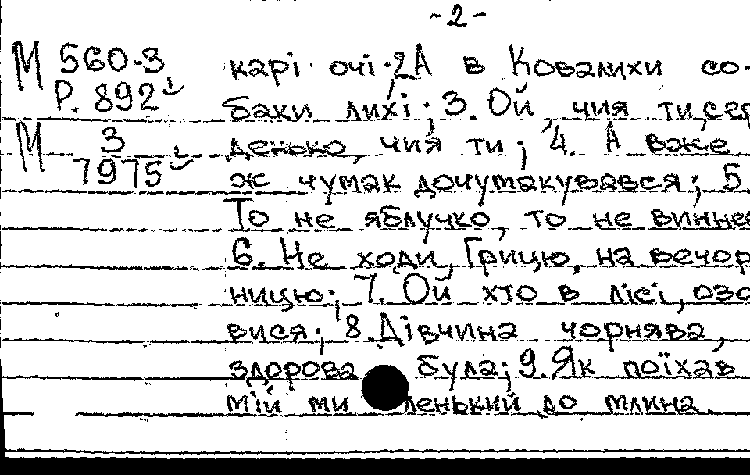 -2-
М 560-3 карі очі; 2А в Ковалихи со-
Р. 892 баки лихі; 3. Ой, чия ти, сер
М 3 денько, чия ти; 4. А вже
7975 ж чумак дочумакувався; 5.
То не яблучко, то не винне
6. Не ходи, Грицю, на вечор
ницю; 7. Ой хто в лісі, озо
вися; 8. Дівчина чорнява,
здорова була; 9. Як поїхав
мій ми ленький до млина.